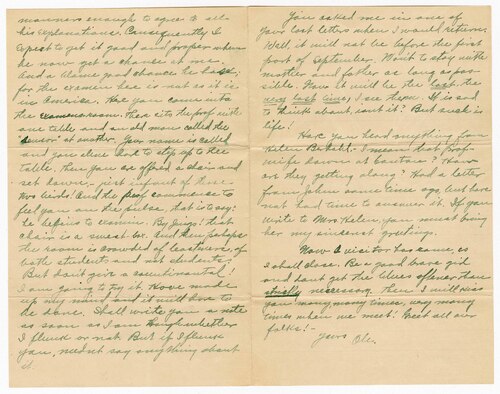 manners enough to agree to all
his explanations. Consequently I
expect to get it good and proper when
he now get a chance at me.
And a blame good chance he has,
for the examen here is not as it is
in America. Here you come into
the examensroom. There sits the prof. with
one table and an old man called the
"censor" at another. Your name is called
and you have to step up to the
table. Then you are offered a chair and
set down, - just infront of these
two birds! And the prof. commence to
feel you on the pulse, that is to say:
he begins to examin. By Jingo! that
chair is a sweat box. And then perhaps
the room is crowded of listeners, of
both students and not students.
But don't give a continental!
I am going to try it. Have made
up my mind and it will have to
be done. Shall write you a note
so soon as I am through whether
I flunk or not. But if I flunk
you need not say anything about
it.
You asked me in one of
your last letters when I would return.
Well, it will not be before the first
part of September. Want to stay with
mother and father as long as pos-
sible. Now it will be the last the
very last time, I see them. It is sad
to think about, isn't it? But such is
life!
Have you heard anything from
Helen I mean that Prof.
wife down at Canton? How
are they getting along? Had a letter
from when some time ago, but have
not had time to answer it. If you
write to Mrs Helen, you must bring
her my sincerest greetings.
Now a visitor has come, so
I shall close. Be a good brave girl
and don't get the blues oftener than
strictly necessary. Then I will kiss
you many, many times, very many
times when we meet! Greet all our
folks! -
Yours Ole.